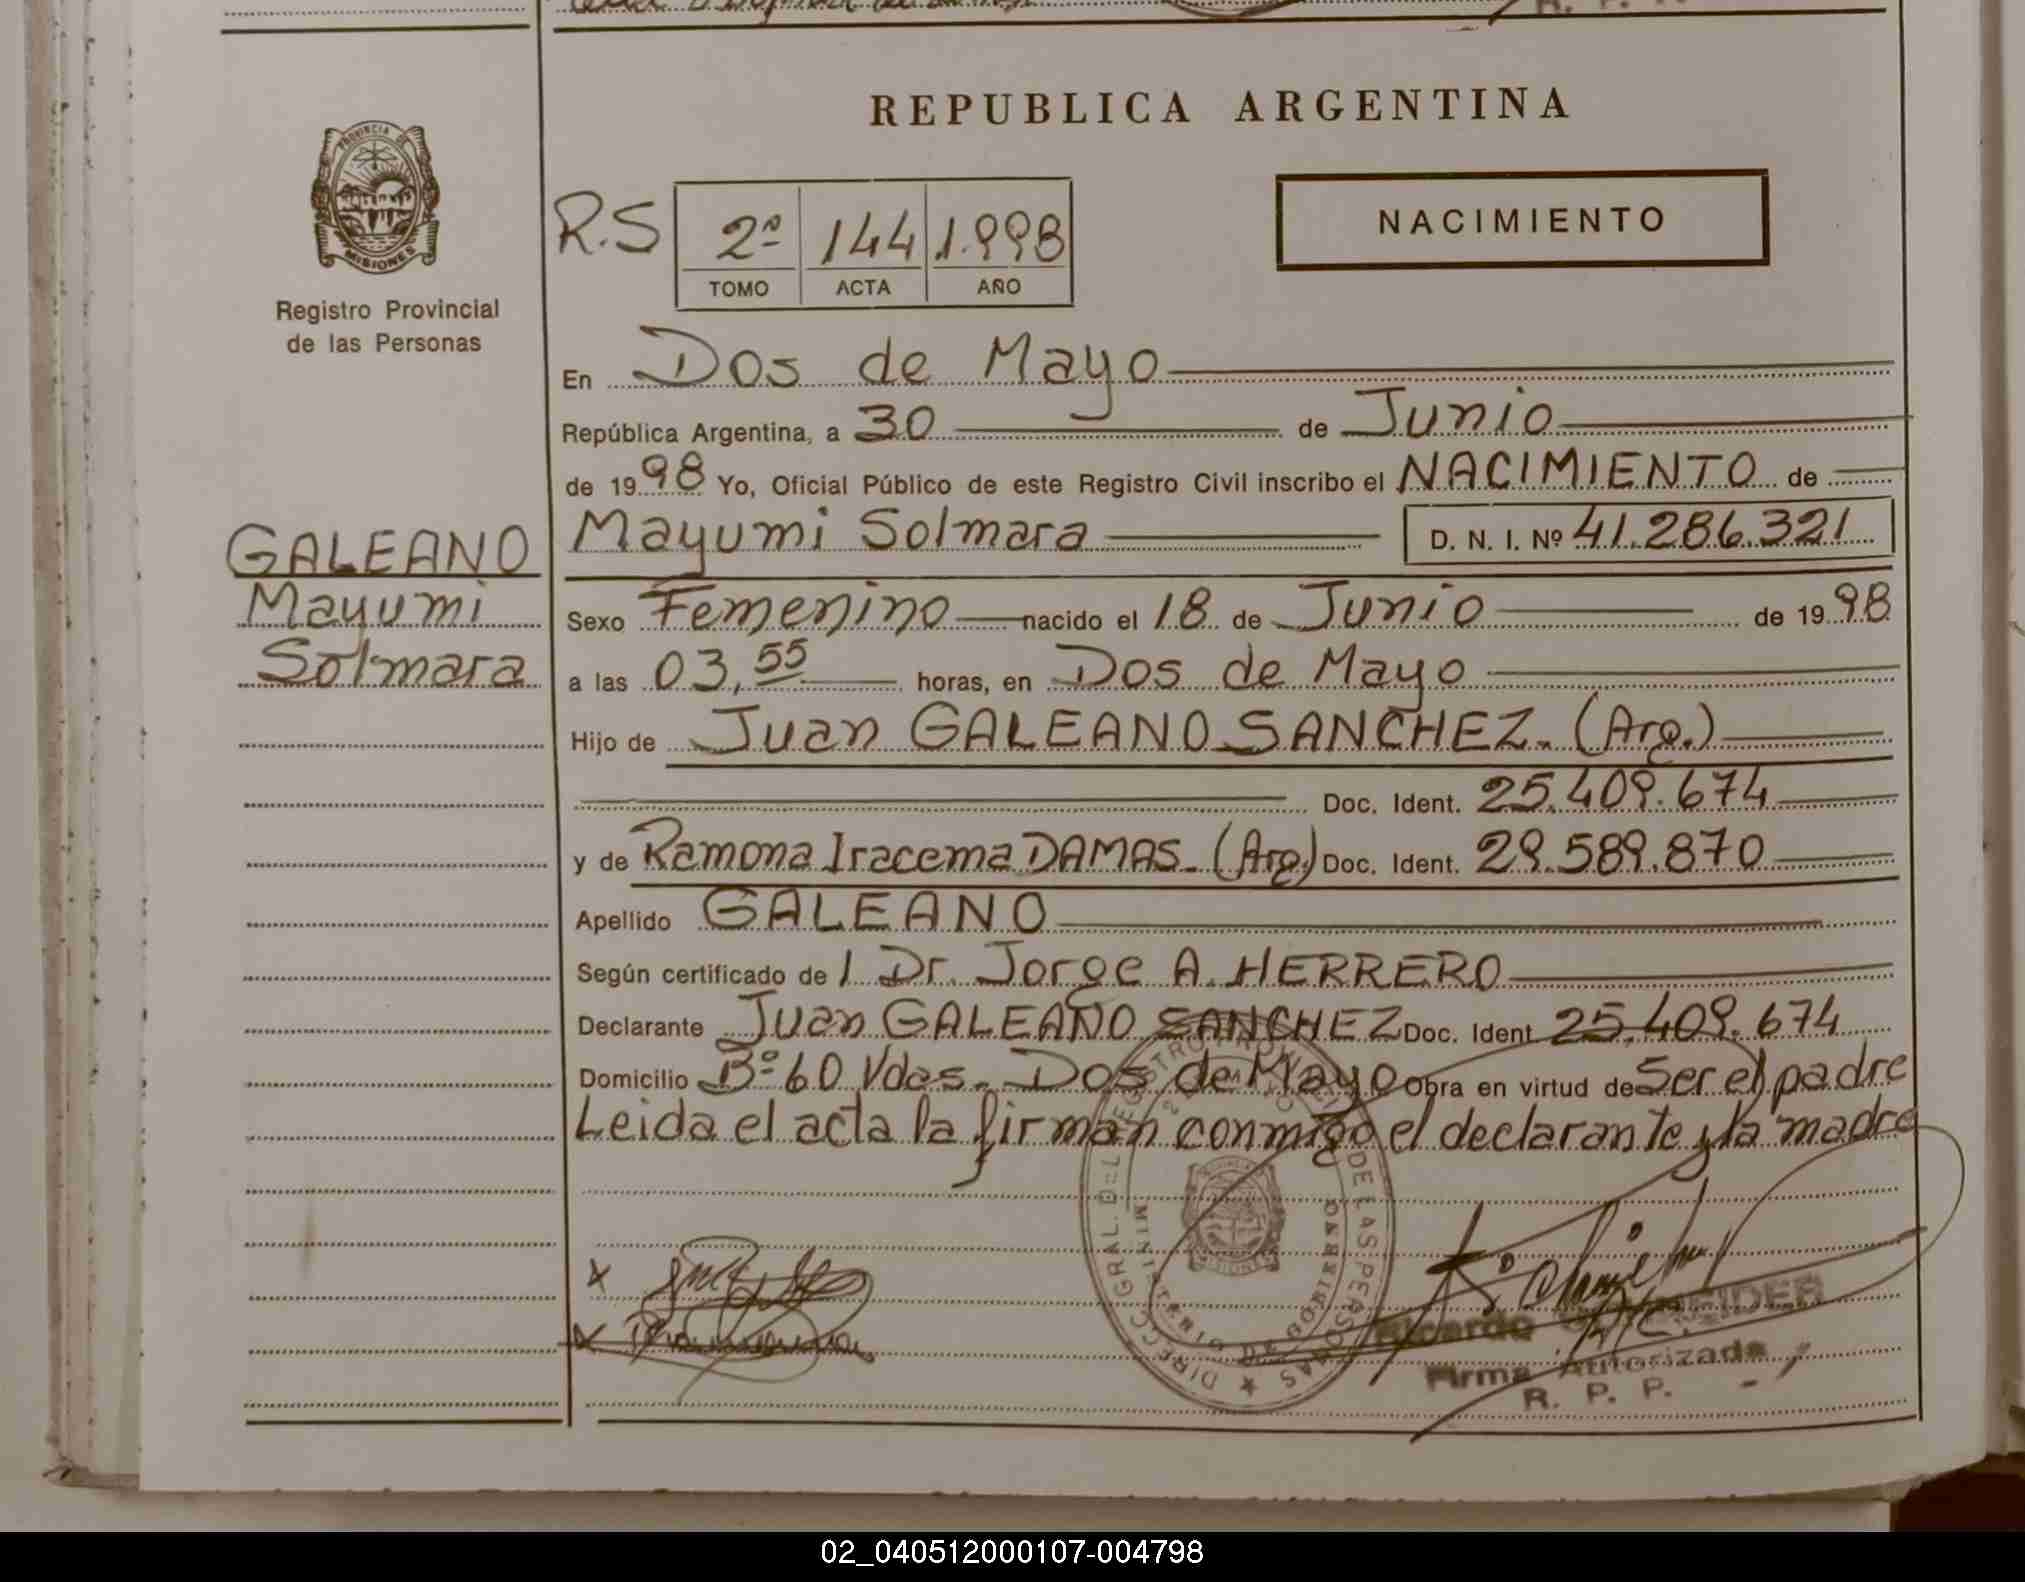 REPUBLICA ARGENTINA
PROVINCIA DE
MISIONES
Registro Provincial
de las Personas
R.S
2º 144 1.998
TOMO ACTA AÑO
NACIMIENTO
En Dos de Mayo
República Argentina, a 30 de Junio
de 1998 Yo, Oficial Público de este Registro Civil inscribo el NACIMIENTO de
GALEANO
Mayumi
Solmara
Mayumi Solmara D. N. I. Nº 41.286.321
Sexo Femenino nacido el 18 de Junio de 1998
a las 03,55 horas, en Dos de Mayo
Hijo de Juan GALEANO SANCHEZ. (Arg.)
Doc. Ident. 25.409.674
y de Ramona Iracema DAMAS. (Arg.) Doc. Ident. 29.589.870
Apellido GALEANO
Según certificado de l Dr. Jorge A. HERRERO
Declarante Juan GALEANO SANCHEZ Doc. Ident 25.409.674
Domicilio Bº 60 Vdas. Dos de Mayo Obra en virtud de Ser el padre
Leida el acta la firman conmigo el declarante y la madre
DIRECC. GRAL. DEL REGISTRO PROVINCIAL DE LAS PERSONAS
MINISTERIO DE GOBIERNO
MISIONES
x
x
Ricardo SCHNEIDER
Firma Autorizada
R. P. P.
02_040512000107-004798